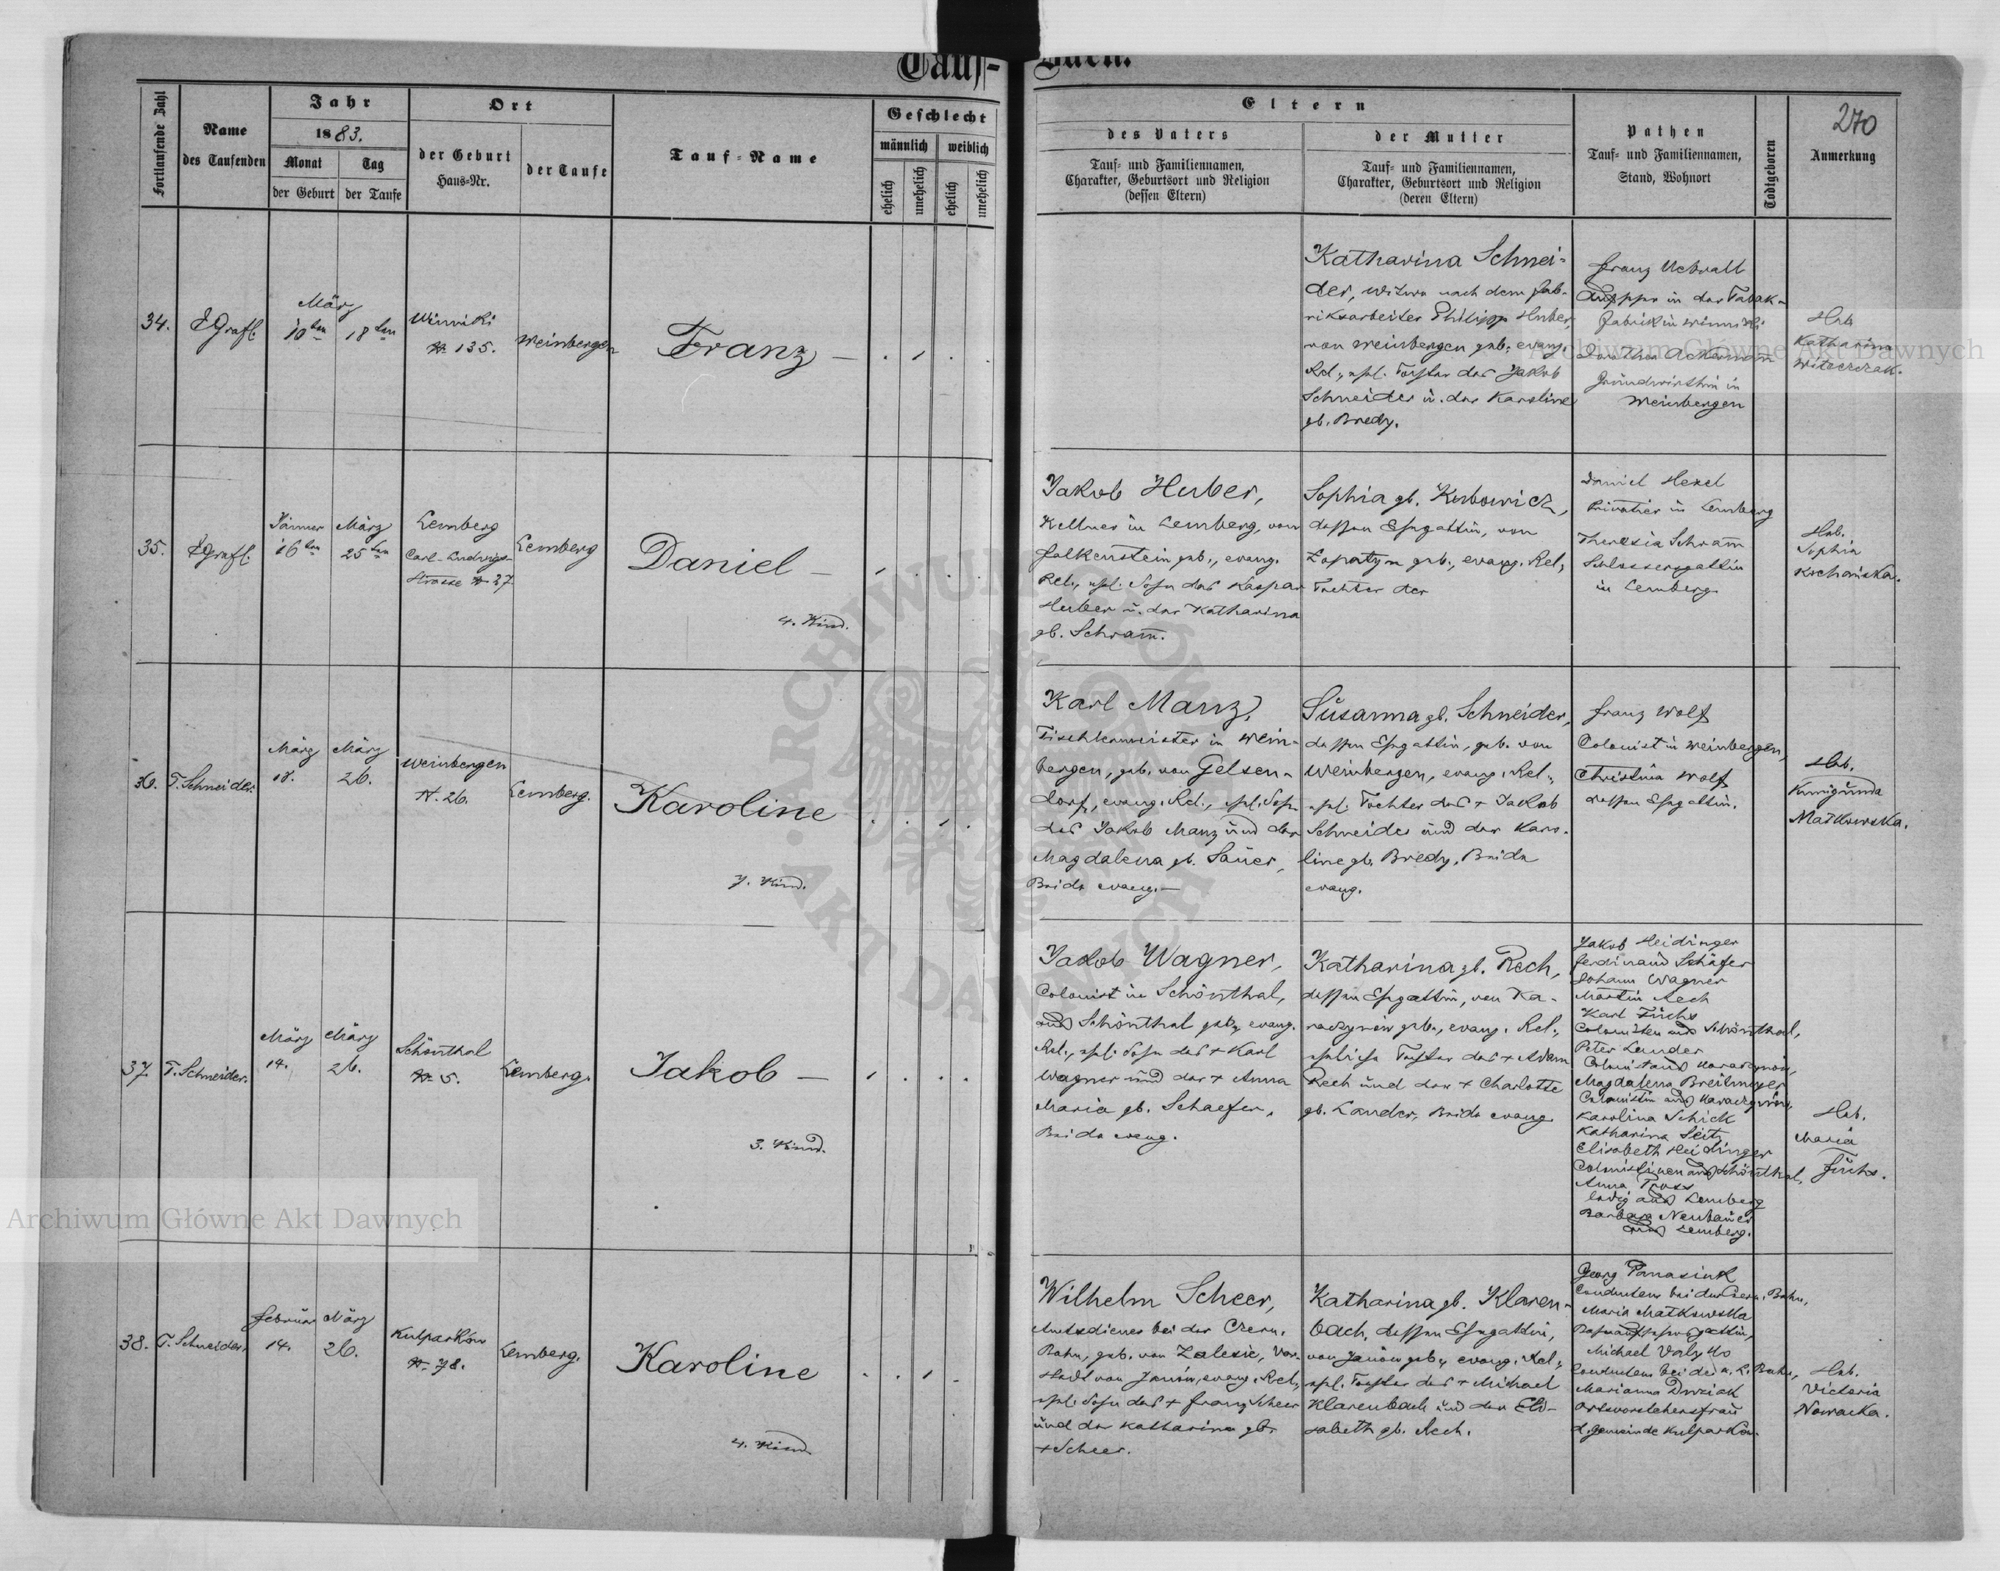 Tauf-Buch.
270
Fortlaufende Zahl
Name
des Taufenden
Jahr
1883.
Monat
der Geburt
Tag
der Taufe
Ort
der Geburt
Haus-Nr.
der Taufe
Tauf-Name
Geschlecht
männlich
weiblich
ehelich
unehelich
ehelich
unehelich
Eltern
des Vaters
Tauf- und Familiennamen,
Charakter, Geburtsort und Religion
(dessen Eltern)
der Mutter
Tauf- und Familiennamen,
Charakter, Geburtsort und Religion
(deren Eltern)
Pathen
Tauf- und Familiennamen,
Stand, Wohnort
Todtgeboren
Anmerkung
34.
Grafl
März
10ten
18ten
Winniki
N. 135.
Weinbergen
Franz
Katharina Schnei-
der, Witwe nach dem Fab-
riksarbeiter Philipp Huber,
von Weinbergen geb., evang.
Rel., ehl. Tochter des Jakob
Schneider u. der Karoline
gb. Bredy.
Franz
in der Tabak-
fabrik in Winniki
Dorothea Ackermann
Grundwirthin in
Weinbergen
Heb.
Katharina
Witoczak.
35.
Grafl.
Jänner
16ten
März
25ten
Lemberg
Carl-Ludwigs-
Strasse N 27
Lemberg
Daniel
4. Kind.
Jakob Huber,
Kellner in Lemberg, von
Falkenstein geb., evang.
Rel., ehl. Sohn des Kaspar
Huber u. der Katharina
gb. Schram̅.
Sophia gb. Kubowicz,
dessen Ehegattin, von
Lopatyn geb., evang. Rel.,
Tochter der
Daniel Hexel
Privatier in Lemberg
Theresia Schram̅
Schlossersgattin
in Lemberg
Heb.
Sophia
Kochańska.
36.
T. Schneider.
März
18.
März
26.
Weinbergen
N. 26.
Lemberg.
Karoline
7. Kind.
Karl Manz,
Tischlermeister in Wein-
bergen, geb. von Gelsen-
dorf, evang. Rel., ehl. Sohn
des Jakob Manz und der
Magdalena gb. Sauer,
Beide evang.
Susanna gb. Schneider,
dessen Ehegattin, geb. von
Weinbergen, evang. Rel.,
ehl. Tochter des + Jakob
Schneider und der Karo-
line gb. Bredy. Beide
evang.
Franz Wolf
Colonist in Weinbergen,
Christina Wolf
dessen Ehegattin.
Heb.
Kunigunda
Matkowska.
37.
T. Schneider.
März
14.
März
26.
Schönthal
N. 5.
Lemberg.
Jakob
3. Kind.
Jakob Wagner,
Colonist in Schönthal,
aus Schönthal geb., evang.
Rel., ehl. Sohn des + Karl
Wagner und der + Anna
Maria gb. Schaefer,
Beide evang.
Katharina gb. Rech,
dessen Ehegattin, von Ka-
raczynów geb., evang. Rel.,
eheliche Tochter des + Adam
Rech und der + Charlotte
gb. Lander, Beide evang.
Jakob Heidinger
Ferdinand Schäfer
Johann Wagner
Martin Rech
Karl Fuchs
Colonisten aus Schönthal,
Peter Lander
Colonist aus Karaczynów,
Magdalena Breitmayer
Colonistin aus Karaczynów,
Karolina Schick
Katharina Seitz
Elisabeth Heidinger
Colonistinen aus Schönthal,
Anna Tross
ledig aus Lemberg
Barbara Neubauer
aus Lemberg.
Heb.
Maria
Fuchs.
38.
T. Schneider.
Februar
14.
März
26.
Kulparków
N. 78.
Lemberg.
Karoline
4. Kind
Wilhelm Scheer,
Amtsdiener bei der Czern.
Bahn, geb. von Zalesie, Vor-
stadt von Janów, evang. Rel.,
ehl. Sohn des + Franz Scheer
und der Katharina gb.
+ Scheer.
Katharina gb. Klaren-
bach, dessen Ehegattin,
von Janów geb., evang. Rel.,
ehl. Tochter des + Michael
Klarenbach und der Eli-
sabeth gb. Rech.
Georg Panasiuk
Conducteur bei der Czern. Bahn,
Maria Matkowska
Bahnaufsehersgattin,
Michael
Conducteur bei der Bahn,
Marianna Duziak
Ortsvorstehersfrau
d. Gemeinde Kulparków.
Heb.
Victoria
Nowacka.
Archiwum Główne Akt Dawnych
Archiwum Główne Akt Dawnych